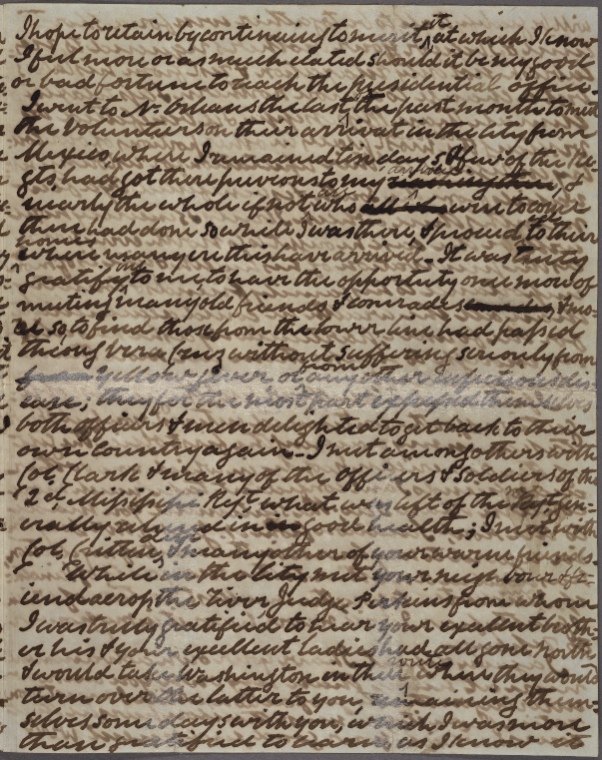 I hope to retain by continuing to merit it, at which I know
I feel more or as much elated should it be my good
or bad fortune to reach the presidential office.
I went to N. Orleans the last of the past month to meet
the Volunteers on their arrival in the city from
Mexico, where I remained ten days, & few of the Re-
gts, had got there previous to my arrival, &
nearly the whole if not who were to come
then had done so while I was there, & proceed to their
homes where many ere this have arrived - It was truly
gratifying to me, to have the opportunity once more of
meeting many old friends & comrades, & mo-
re so, to find those from the lower line had passed
through Vera Cruz without suffering seriously from
yellow fever or from any other infectious dis-
ease; they for the most part expressed themselves
both officers & men delighted to get back to their
own Country again - I met among others with
Col. Clark & many of the officers & soldiers of the
2d. Mississippi Regt what was left of the Regt gen-
erally in good health; I met with
Col. & many other of your warm friends.
While in the city met your neighbour &
friend across the river Judge Perkins from whom
I was truly gratified to hear your excellent broth-
er his & your excellent ladies had all gone North
& would take Washington in their route where they would
turn over the latter to you, remaining them-
selves some days with you, which I was more
than gratified to learn, as I know it